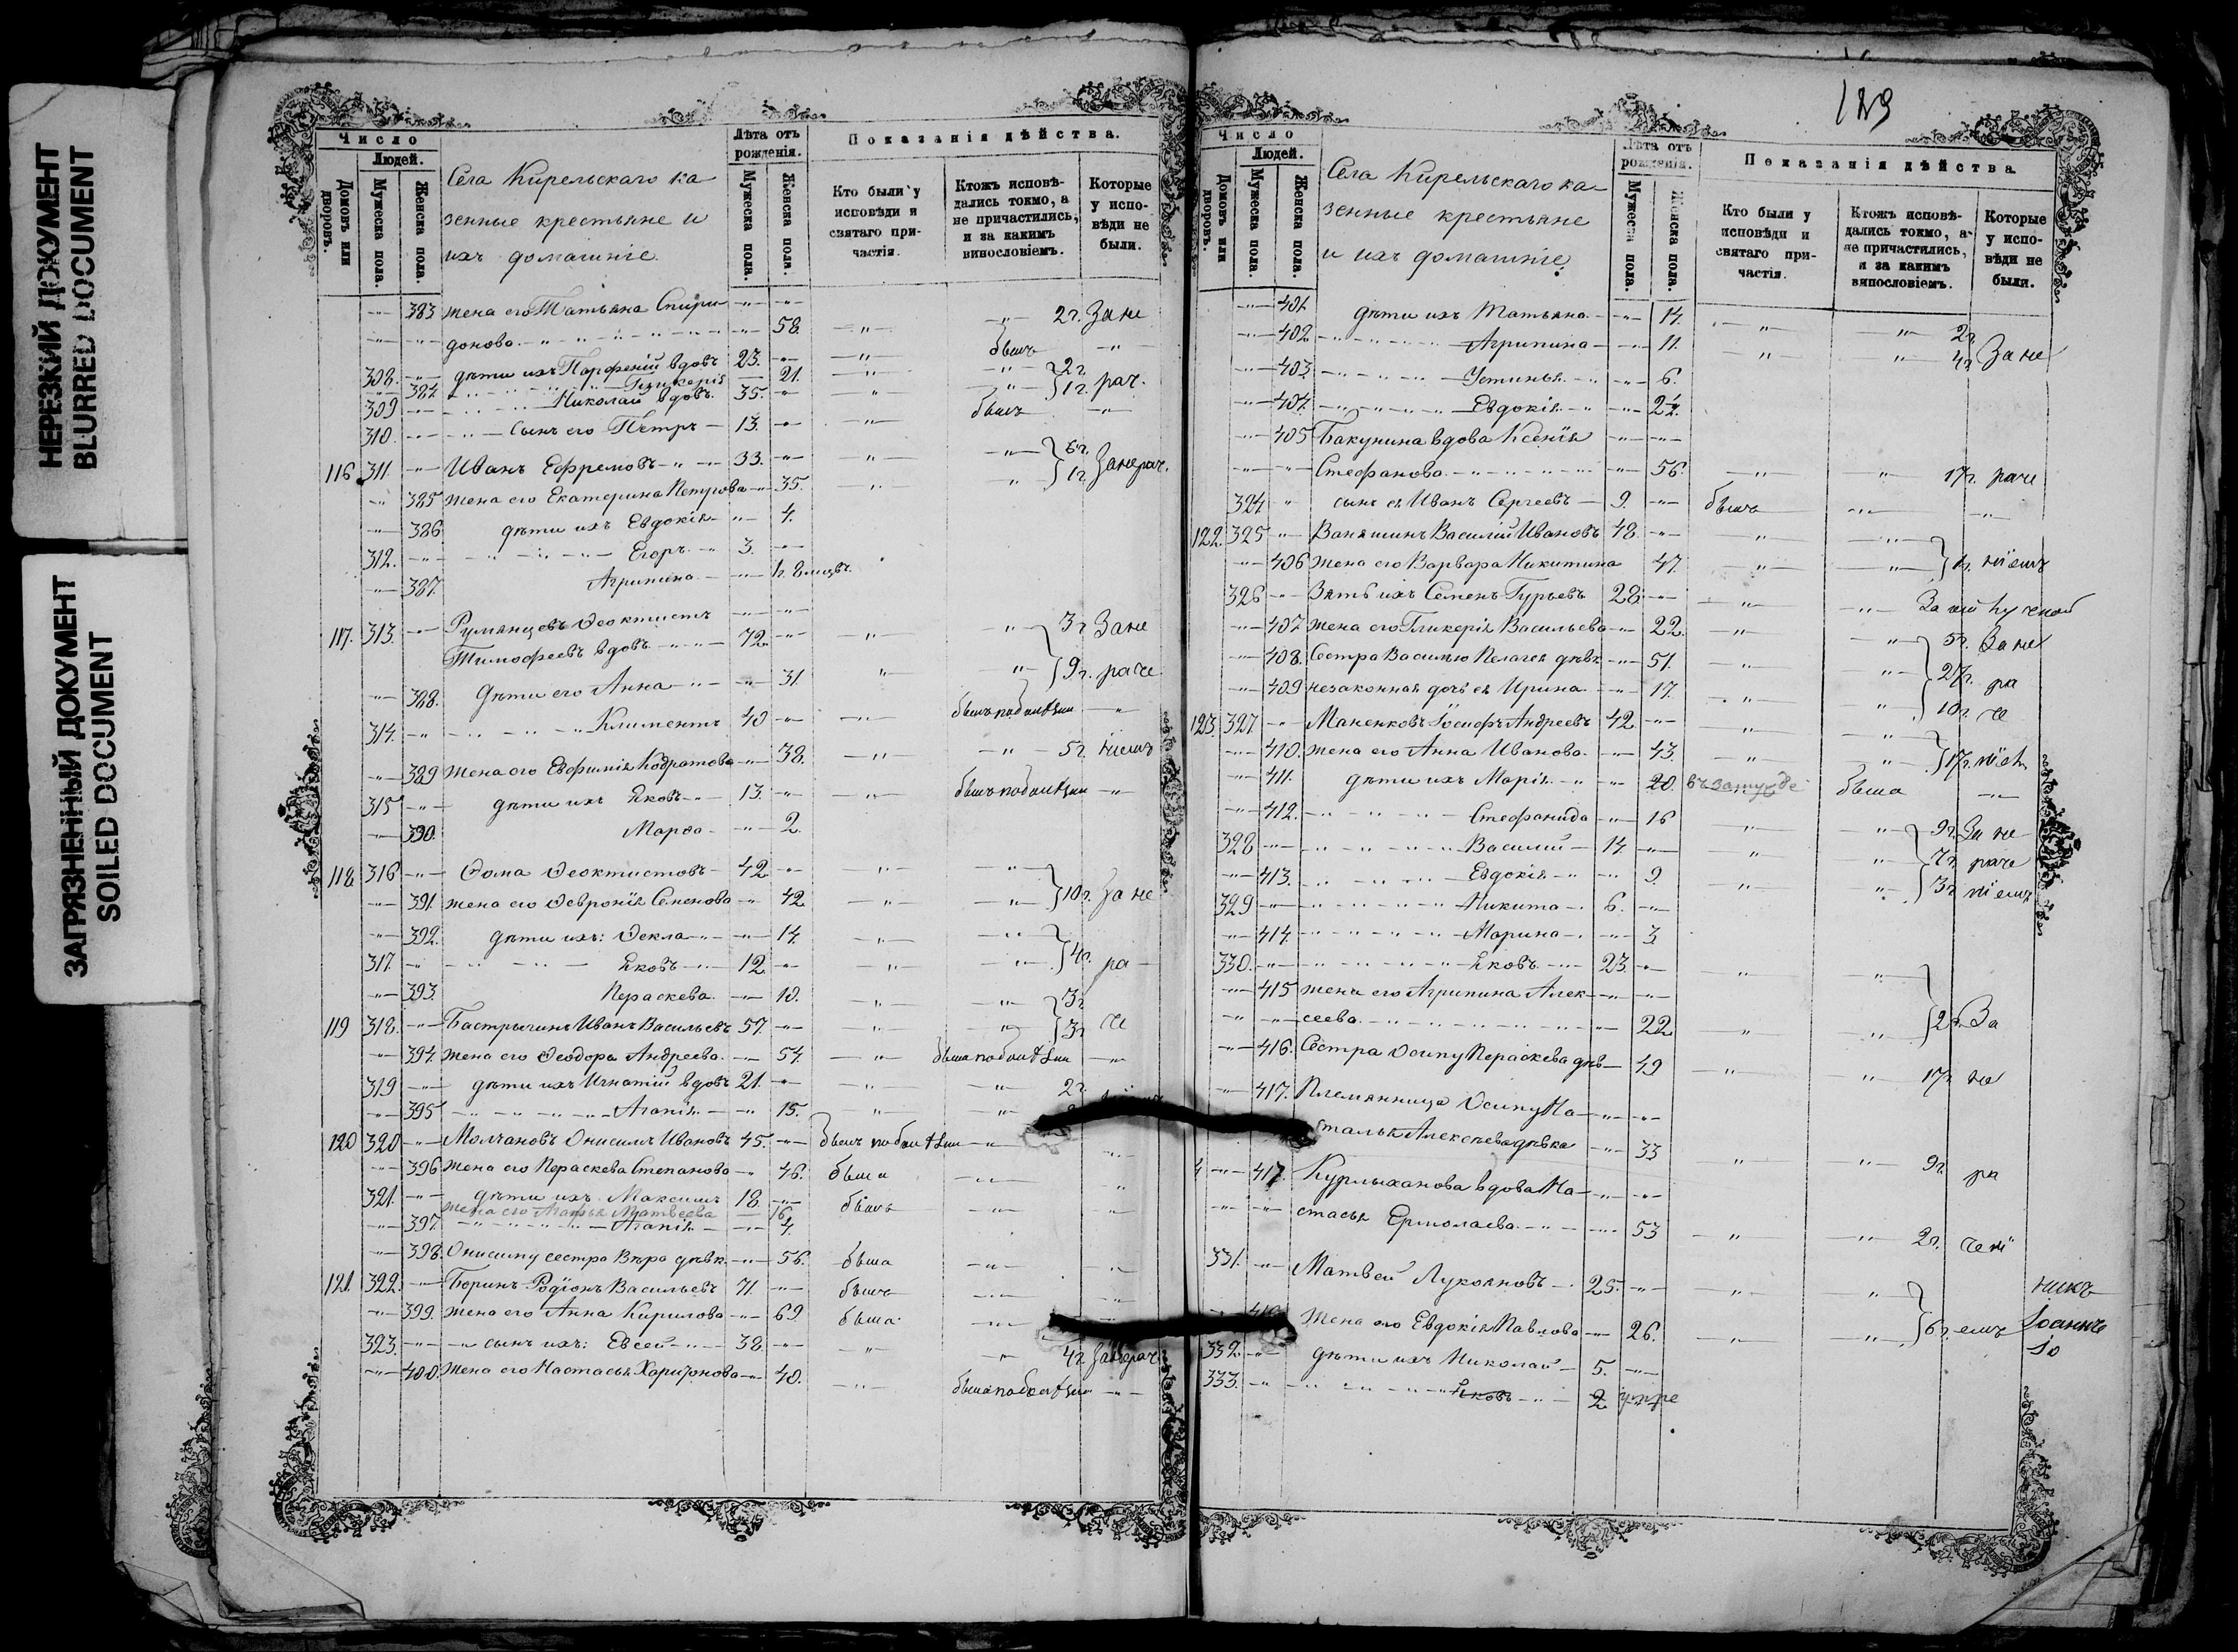 НЕРЕЗКИЙ ДОКУМЕНТ
BLURRED DOCUMENT
ЗАГРЯЗНЕННЫЙ ДОКУМЕНТ
SOILED DOCUMENT
Число
Людей.
Домовъ или дворовъ.
Мужеска пола.
Женска пола.
Села Кирельскаго ка
зенные крестьяне и
ихъ домашніе.
Лѣта отъ рожденія.
Мужеска пола.
Женска пола.
Показанія дѣйства.
Кто были у исповѣди и святаго причастія.
Ктожъ исповѣдались токмо, а не причастились, и за какимъ винословіемъ.
Которые у исповѣди не были.
383 жена его Татьяна Спири
донова 58. 2г. За не
308. дѣти ихъ Парфеній вдовъ 23. бытъ
384 Гликерія 21. 2г.
309 Николай вдовъ 35. 1г. рач.
310. Сынъ его Петръ 13. бытъ
116 311. Иванъ Ефремовъ 33. 6г.
385 жена его Екатерина Петрова 35. 1г. Занерач.
386 дѣти ихъ Евдокія 4.
312. Егоръ 3.
387. Агрипина
117. 313. Румянцевъ Ѳеоктистъ
Тимофеевъ вдовъ 72. 3г. За не
388. Дѣти его Анна 31. 9г. раче
314. Климентъ 40
389 Жена его Евфимія Кодратова 38. 5г. ніемъ
315 дѣти ихъ Яковъ 13.
390. Марѳа 2.
118 316 Ѳома Ѳеоктистовъ 42
391. жена его Ѳевронія Семенова 42 10г. За не
392. дѣти ихъ: Ѳекла 14.
317. Яковъ 12 4г. ра
393. Пераскева 10. 3г.
119 318. Бастрыгинъ Иванъ Васильевъ 57. 3г. че
394. жена его Ѳеодора Андреева 54
319 дѣти ихъ Игнатій вдовъ 21. 2г.
395 Агапія 15.
120 320 Молчановъ Онисимъ Ивановъ 45.
396 жена его Пераскева Степанова 46. была
321. дѣти ихъ Максимъ 18 былъ
жена его Матвеева 16
397. Агапія 4.
398. Онисиму сестра Вѣра дѣвк. 56. была
121. 322. Боринъ Родіонъ Васильевъ 71. былъ
399. жена его Анна Кирилова 69 была
323. сынъ ихъ: Евсей 38. 4г. Занерач
400. Жена его Настасья Харитонова 40.
129
Число
Людей.
Домовъ или дворовъ.
Мужеска пола.
Женска пола.
Села Кирельскаго ка
зенные крестьяне
и ихъ домашніе
Лѣта отъ рожденія.
Мужеска пола.
Женска пола.
Показанія дѣйства.
Кто были у исповѣди и святаго причастія.
Ктожъ исповѣдались токмо, а не причастились, и за какимъ винословіемъ.
Которые у исповѣди не были.
401 дѣти ихъ Татьяна 14. 2г.
402 Агрипина 11. 4г. За не
403 Устинья 6.
404. Евдокія
405 Бакунина вдова Ксенія
Стефанова 56. 17г. раче
324 сынъ ея Иванъ Сергеевъ 9. бытъ
122. 325 Ванятинъ Василій Ивановъ 48.
406 жена его Варвара Никитина 47. ніемъ
326 Зять ихъ Семенъ Гурьевъ 28.
407 жена его Гликерія Васильева 22. 5г. За не
408. Сестра Василью Пелагея дѣвк 51. 27г. ра
409 незаконная дочь ея Ирина 17. 10г. че
123. 327. Маненковъ Іосифъ Андреевъ 42
410. жена его Анна Иванова 43. 17г.
411. дѣти ихъ Марія 20. была
412. Стефанида 16 9г. За не
328 Василій 14. 7г. раче
413. Евдокія 9. 3г. ніемъ
329 Никита 6.
414. Марина 3
330. Яковъ 23.
415 жена его Агрипина Алек
сеева 22 2г. За
416. Сестра Осипу Пераскева дѣв 49 17г. не
417. Племянница Осипу На
сталья Алексѣева дѣвка 33 9г. ра
417. Курлыханова вдова На
стасья Ермолаева 53 2г.
331. Матвей Лукояновъ 25.
Жена его Евдокія Павлова 26. 6г. емъ
332 дѣти ихъ Николай 5.
333. Яковъ 2
никъ
Іоаннъ